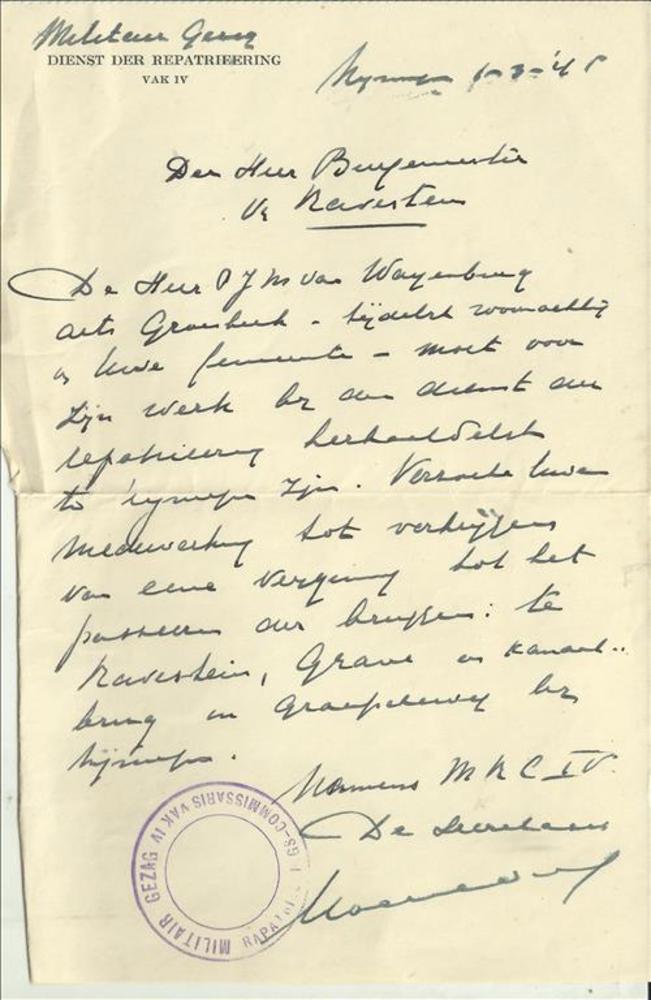 Militair Gezag
DIENST DER REPATRIEERING
VAK IV
Nijmegen 6-3-'45
Den Heer Burgemeester
v. Ravestein
De Heer P J M van Wayenburg
arts Groesbeek - tijdelijk woonachtig
in Uwe gemeente - moet voor
zijn werk bij den dienst der
repatrieering herhaaldelijk
te Nijmegen zijn. Verzoeke Uwe
medewerking tot verkrijgen
van eene vergunning tot het
passeeren der bruggen: te
Ravestein, Grave en Kanaal-
brug in Graafscheweg bij
Nijmegen.
Namens M R C IV
De Secretaris
MILITAIR GEZAG VAK IV GS-COMMISSARIS